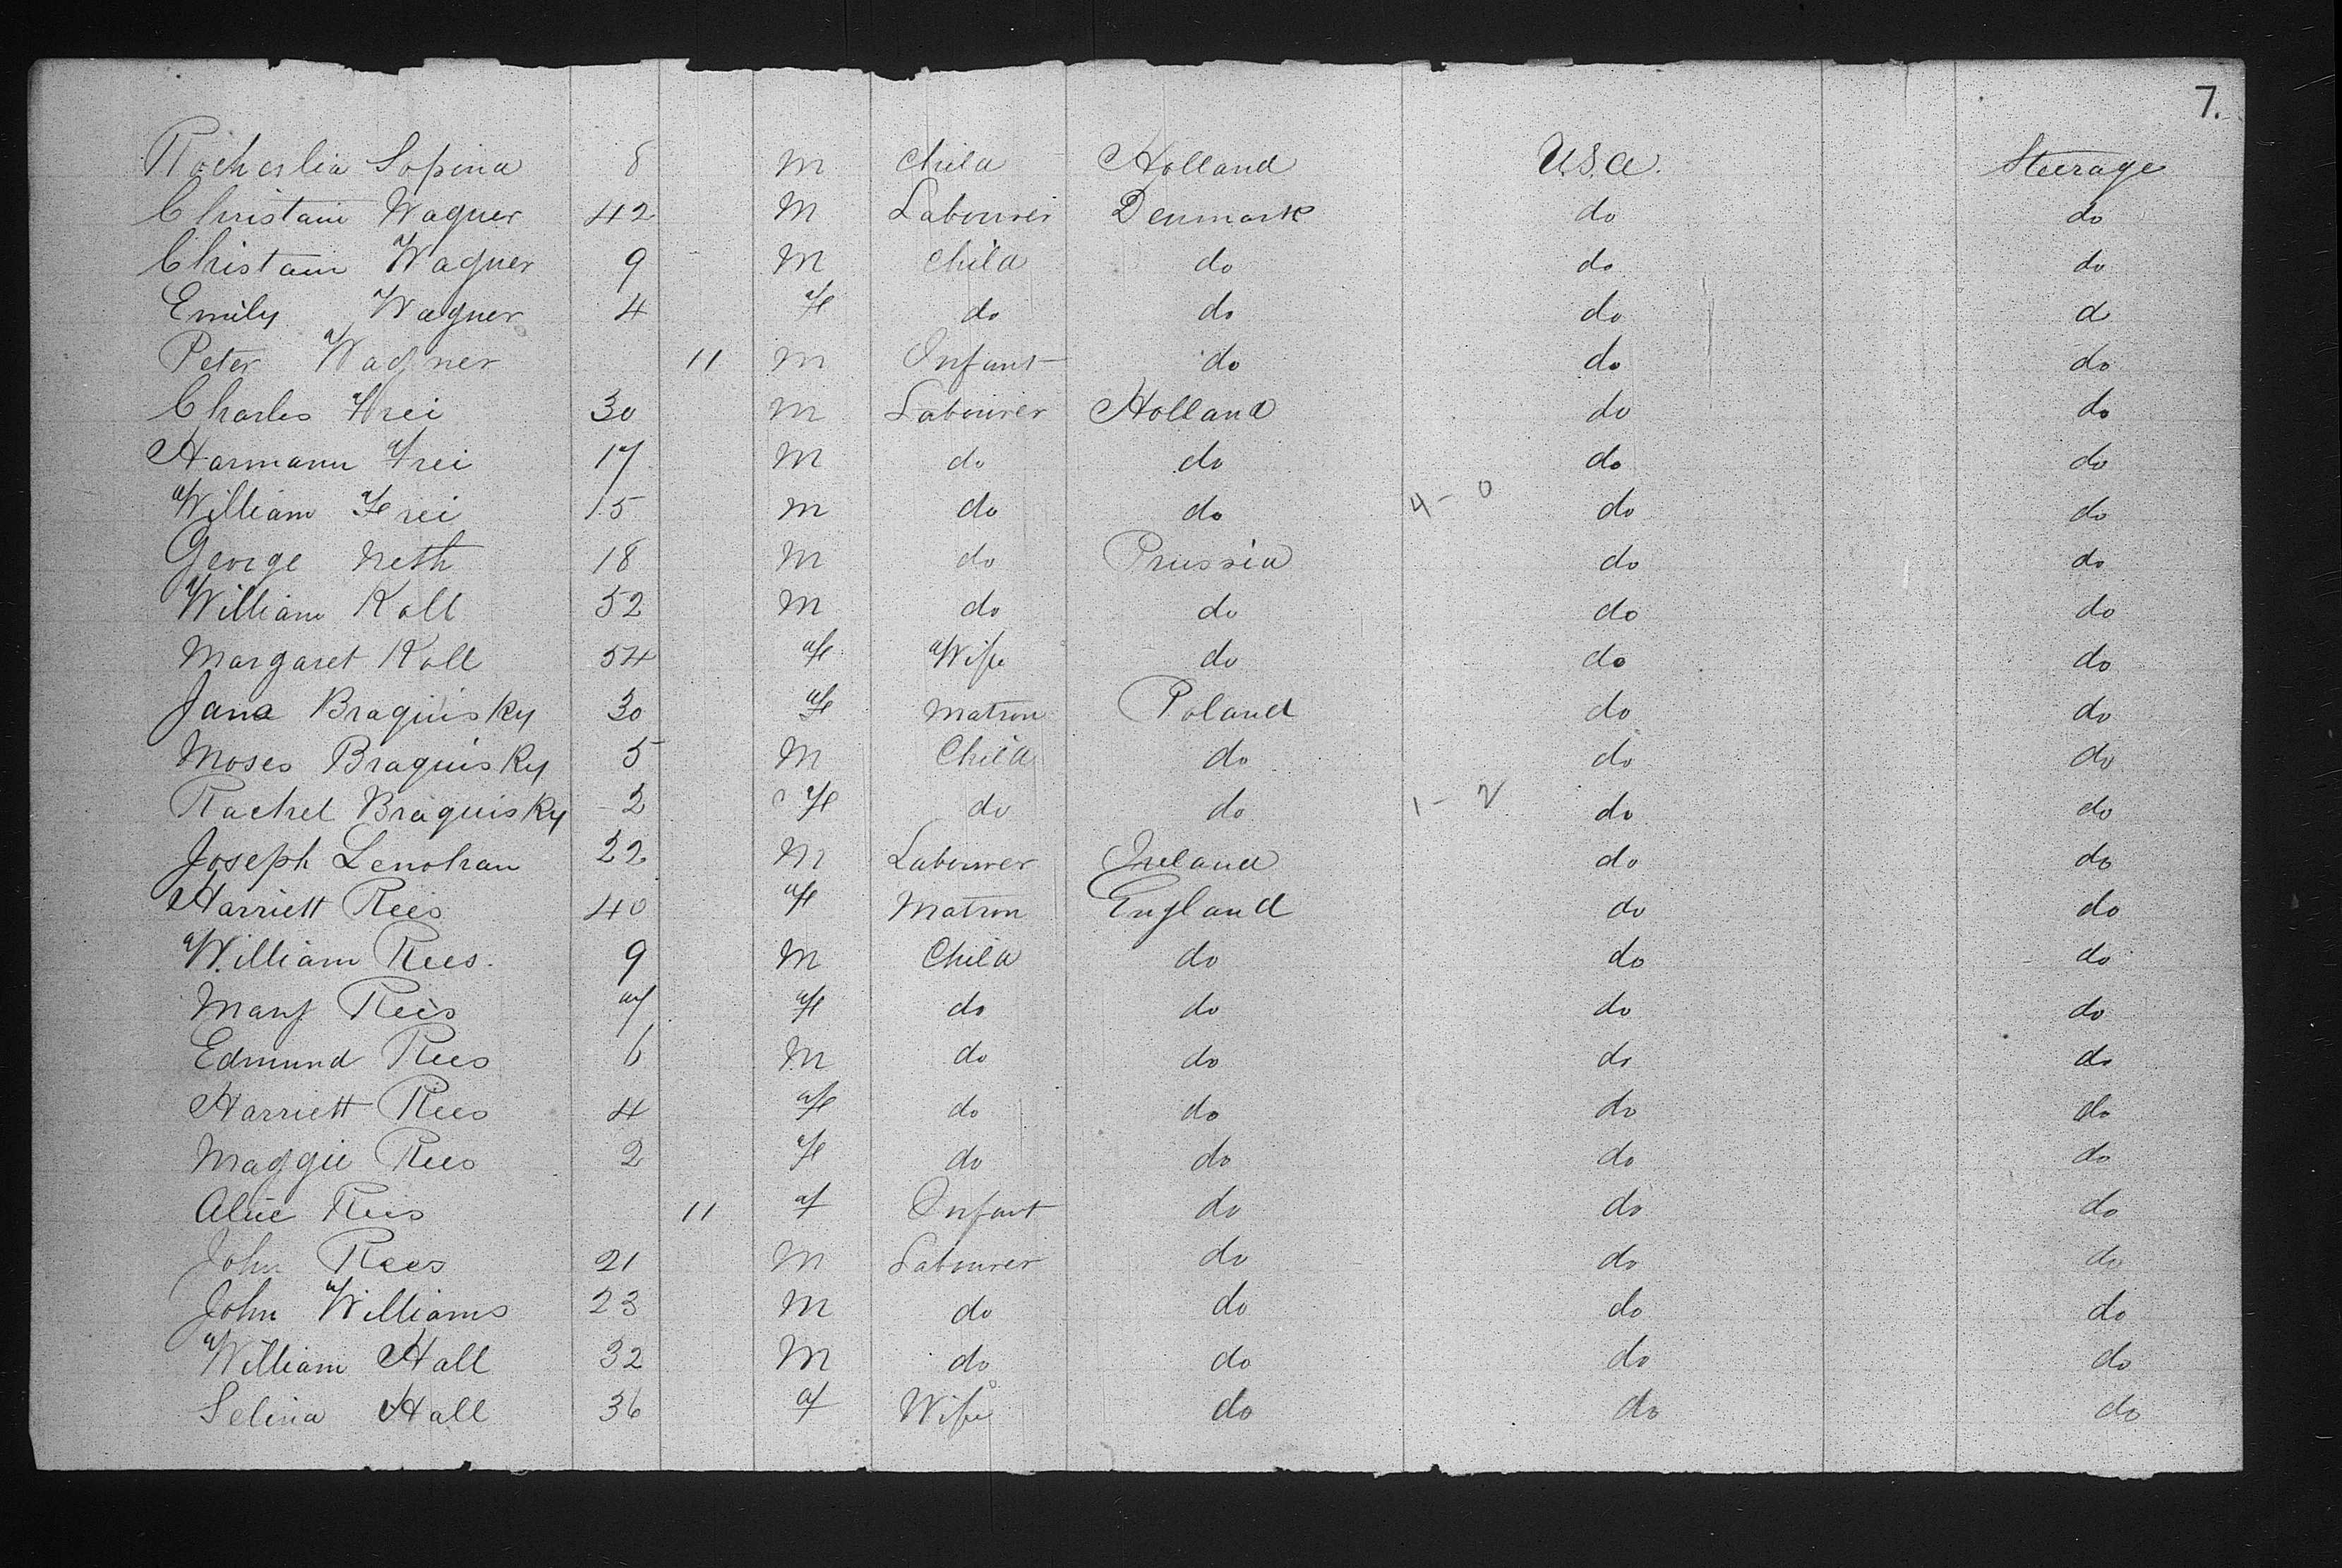 7.
Rocheslia Sopina 8 M Child Holland U.S.A. Steerage
Christain Wagner 42 M Labourer Denmark do do
Chistain Wagner 9 M Child do do do
Emily Wagner 4 F do do do d
Peter Wagner 11 M Infant do do do
Charles Frei 30 M Labourer Holland do do
Harmann Frei 17 M do do do do
William Frei 15 M do do 4 - 0 do do
George Neth 18 M do Prussia do do
William Koll 52 M do do do do
Margaret Koll 54 F Wife do do do
Jana Braquisky 30 F Matron Poland do do
Moses Braquisky 5 M Child do do do
Rachel Braquisky 2 F do do 1 - 2 do do
Joseph Lenohan 22 M Labourer Ireland do do
Harriett Rees 40 F Matron England do do
William Rees. 9 M Child do do do
Mary Rees 7 F do do do do
Edmund Rees 6 M do do do do
Harriett Rees 4 F do do do do
Maggie Rees 2 F do do do do
Alice Rees 11 F Infant do do do
John Rees 21 M Labourer do do do
John Williams 23 M do do do do
William Hall 32 M do do do do
Selina Hall 36 F Wife do do do